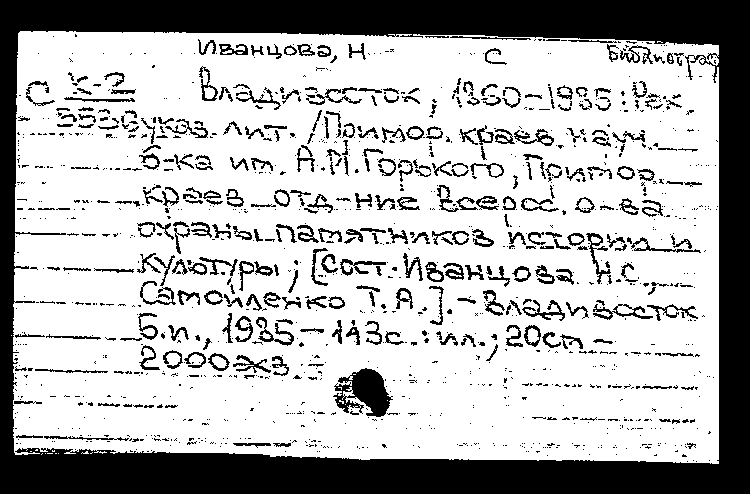 Иванцова, Н С Библиограф
С К-2 Владивосток, 1860-1985: Рек.
5536 указ. лит. /Примор. краев. науч.
б-ка им. А.М.Горького, Примор.
краев. отд-ние Всеросс. о-ва
охраны памятников истории и
культуры; [Сост. Иванцова Н.С.,
Самойленко Т.А.]. - Владивосток
Б.и., 1985. - 143с.: ил.; 20см -
2000экз. -